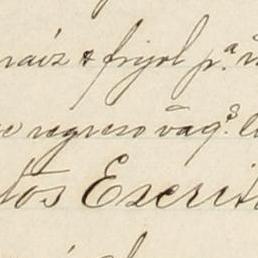 maiz & frijol p.ª
regreso vaq.s
tos Escrit